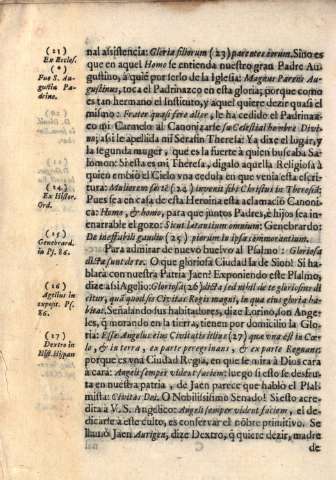 (21)
Ex Eccles.
(*)
Fue S. Au-
gustin Pa-
drino.
(24)
Ex Histor.
Ord.
(25)
Genebrard.
in Ps. 86.
(26)
Agelius in
exposit. Ps.
86.
(27)
Dextro in
Hist. Hispan
nal assistencia: Gloria filiorum (23) parentes eorum. Sino es
que en aquel Homo se entienda nuestro gran Padre Au-
gustino, à quiẽ por serlo de la Iglesia: Magnus Parens Au-
gustinus, toca el Padrinazco en esta gloria; porque como
es tan hermano el Instituto, y aquel quiere dezir quasi el
mismo: Frater quasi fere alter, le ha cedido el Padrinaz-
co mi Carmelo al Canonizarse su Celestial hombre Divi-
no; assi le apellida mi Serafin Theresa: Ya dixe el lugar, y
la segunda muger, que es la fuerte à quien buscaba Sa-
lomon: Si està es mi Theresa, digalo aquella Religiosa à
quien embiò el Cielo vna cedula en que venia esta escri-
tura: Mulierem fortẽ (24) invenit sibi Christus in Theresia:
Pues sea en casa de esta Heroina esta aclamaciõ Canoni-
ca: Homo, & homo, para que juntos Padres, è hijos sea in-
enarrable el gozo: Sicut lætantium omnium: Genebrardo:
De ineffabili gaudio (25) piorum in ipsa commorantium.
Para admirar de nuevo buelvo al Psalmo: Gloriosa
dicta sunt de te. O que gloriosa Ciudad la de Sion! Si ha-
blarà con nuestra Patria Jaen? Exponiendo este Psalmo,
dize assi Agelio: Gloriosa (26) dicta sed nihil de te gloriosius di-
citur, quã quod sis Civitas Regis magni, in qua eius gloria ha-
bitat. Señalando sus habitadores, dize Lorino, son Ange-
les, q̃ morando en la tierra, tienen por domicilio la Glo-
ria: Esse Angelus eius Civitatis illius (27) quæ vna est in Cœ-
lo, & in terra, ex parte peregrinans, & ex parte Regnans:
porque es vna Ciudad Regia, en que se mira à Dios cara
à cara: Angeli semper vident faciem: luego si esto se desfru-
ta en nuestra patria, de Jaen parece que hablò el Psal-
mista: Civitas Dei. O Nobilissimo Senado! Si esto acre-
dita à V. S. Angelico: Angeli semper vident faciem, el de-
dicarse à este culto, es conservar el nõbre primitivo. Se
llamò Jaen Aurigen, dize Dextro, q̃ quiere dezir, madre
de